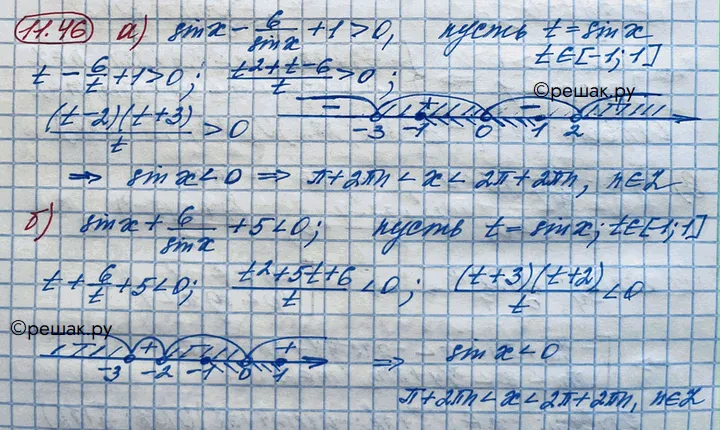 11.46 а) sin x - 6/sin x + 1 > 0, пусть t = sin x
t ∈ [-1; 1]
t - 6/t + 1 > 0; (t² + t - 6)/t > 0;
©решак.ру
(t-2)(t+3)/t > 0
- + - +
-3 -1 0 1 2
⇒ sin x < 0 ⇒ π + 2πn < x < 2π + 2πn, n ∈ Z
б) sin x + 6/sin x + 5 < 0; пусть t = sin x; t ∈ [-1; 1]
t + 6/t + 5 < 0; (t² + 5t + 6)/t < 0; (t+3)(t+2)/t < 0
©решак.ру
- + - +
-3 -2 -1 0 1
⇒ sin x < 0
π + 2πn < x < 2π + 2πn, n ∈ Z